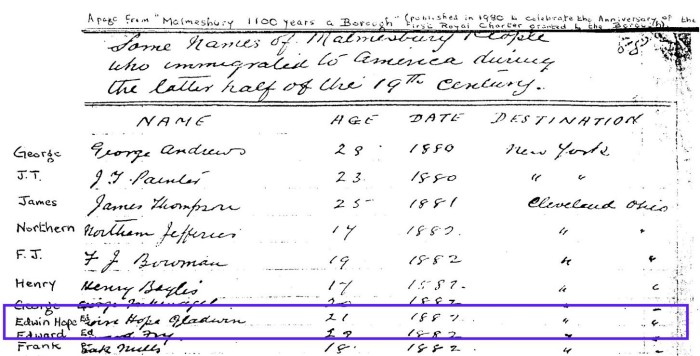 A page from "Malmesbury 1100 years a Borough" (published in 1980 to celebrate the Anniversary of the
First Royal Charter granted to the Borough).
Some Names of Malmesbury People
who immigrated to America during
the latter half of the 19th Century.
NAME AGE DATE DESTINATION
George George Andrews 28 1880 New York
J.T. J.T. Painter 23 1880 " "
James James Thompson 25 1881 Cleveland Ohio
Northern Northern Jefferies 17 1882. " "
F.J. F J Bowman 19 1882 " "
Henry Henry Baylis 17 1882. " "
George George 1882 " "
Edwin Hope Ed Hope Gladwin 21 1882 " "
Edward Ed Fry 29 1882 "
Frank Mills 18. 1882 " "